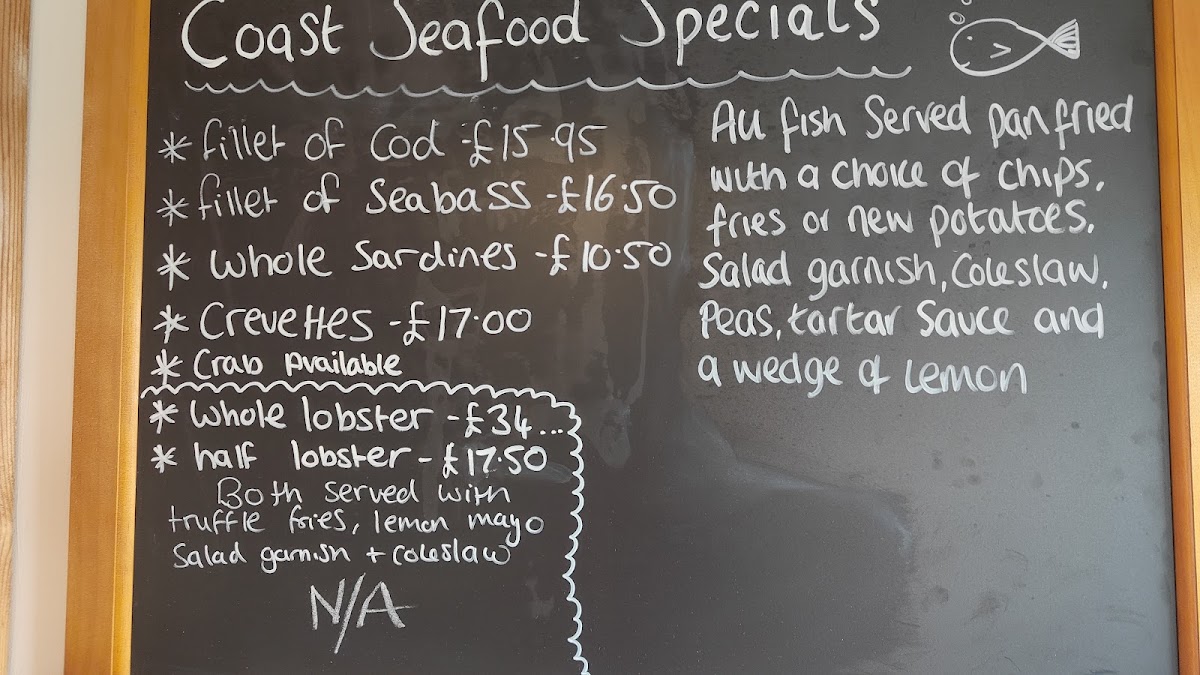 Coast Seafood Specials
* fillet of Cod - £15.95
* fillet of Seabass - £16.50
* Whole Sardines - £10.50
* Crevettes - £17.00
* Crab Available
* Whole lobster - £34...
* half lobster - £17.50
Both served with
truffle fries, lemon mayo
Salad garnish + Coleslaw
N/A
All fish Served panfried
with a choice of chips,
fries or new potatoes.
Salad garnish, Coleslaw,
Peas, tartar Sauce and
a wedge of Lemon